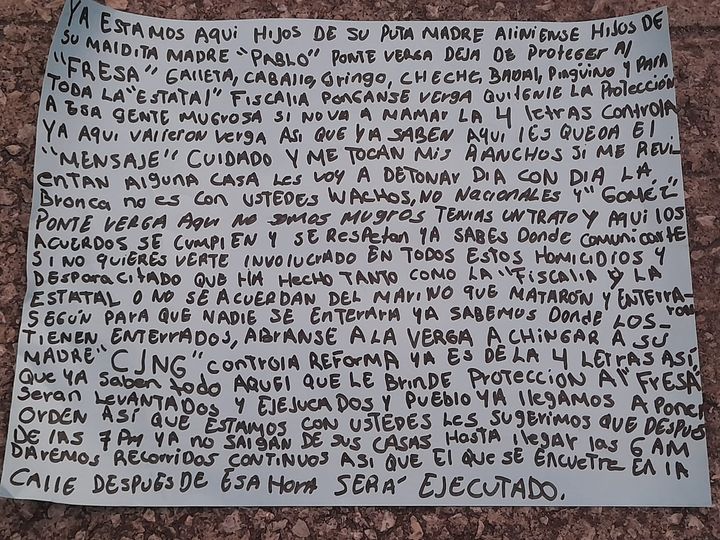 YA ESTAMOS AQUI HIJOS DE SU PUTA MADRE ALINIENSE HIJOS DE
SU MALDITA MADRE "PABLO" PONTE VERGA DEJA DE PROTEGER Al
"FRESA" GALLETA, CABALLO, GRINGO, CHECHE, BADAL, PINGÜINO Y PARA
TODA LA "ESTATAl" FISCALIA PONGANSE VERGA QUITENLE LA PROTECCIÓN
A ESA GENTE MUGROSA SI NO VA A MAMAR LA 4 letras CONTROLA
YA AQUI VALIERON VERGA ASI QUE YA SABEN AQUI LES QUEDA El
"MENSAJE" CUIDADO Y ME TOCAN MIS RANCHOS SI ME REVI-
ENTAN ALGUNA CASA LES VOY A DETONAR DIA CON DIA LA
Bronca no es CON USTEDES WACHOS, NO NACIONALES Y "GOMEZ"
PONTE VERGA AQUI NO SOMOS MUGROS TENIAS UN TRATO Y AQUI LOS
ACUERDOS SE CUMPLEN Y SE RESPETAN YA SABES DONDE COMUNICARTE
SI NO QUIERES VERTE INVOLUCRADO EN TODOS ESTOS HOMICIDIOS Y
DESPARACITADO QUE HA HECHO TANTO COMO LA "FISCALIA Y LA
ESTATAL O NO SE ACUERDAN DEL MARINO QUE MATARÓN Y ENTERRA-
RON
SEGÚN PARA QUE NADIE SE ENTERARA YA SABEMOS DONDE LOS-
TIENEN ENTERRADOS, ABRANSE A LA VERGA A CHINGAR A SU
MADRE "CJNG" CONTROlA REFORMA YA ES DE LA 4 LETRAS ASI
QUE YA SABEN todo AQUEl QUE LE BRINDE PROTECCIÓN Al "FRESA"
SERAN LEVANTADOS Y EJEJUCADOS Y PUEBLO YA LLEGAMOS A PONER
ORDEN ASÍ QUE ESTAMOS CON USTEDES LES SUGERIMOS QUE DESPUÓS
DE LAS 7 PM YA NO SAlGAN DE SUS CASAS HASTA llEGAR lAS 6 AM
DAREMOS RECORRIDOS CONTINUOS ASI QUE El QUE SE ENCUETRE EN lA
CAllE DESPUES DE ESA HORA SERA´ EJECUTADO.